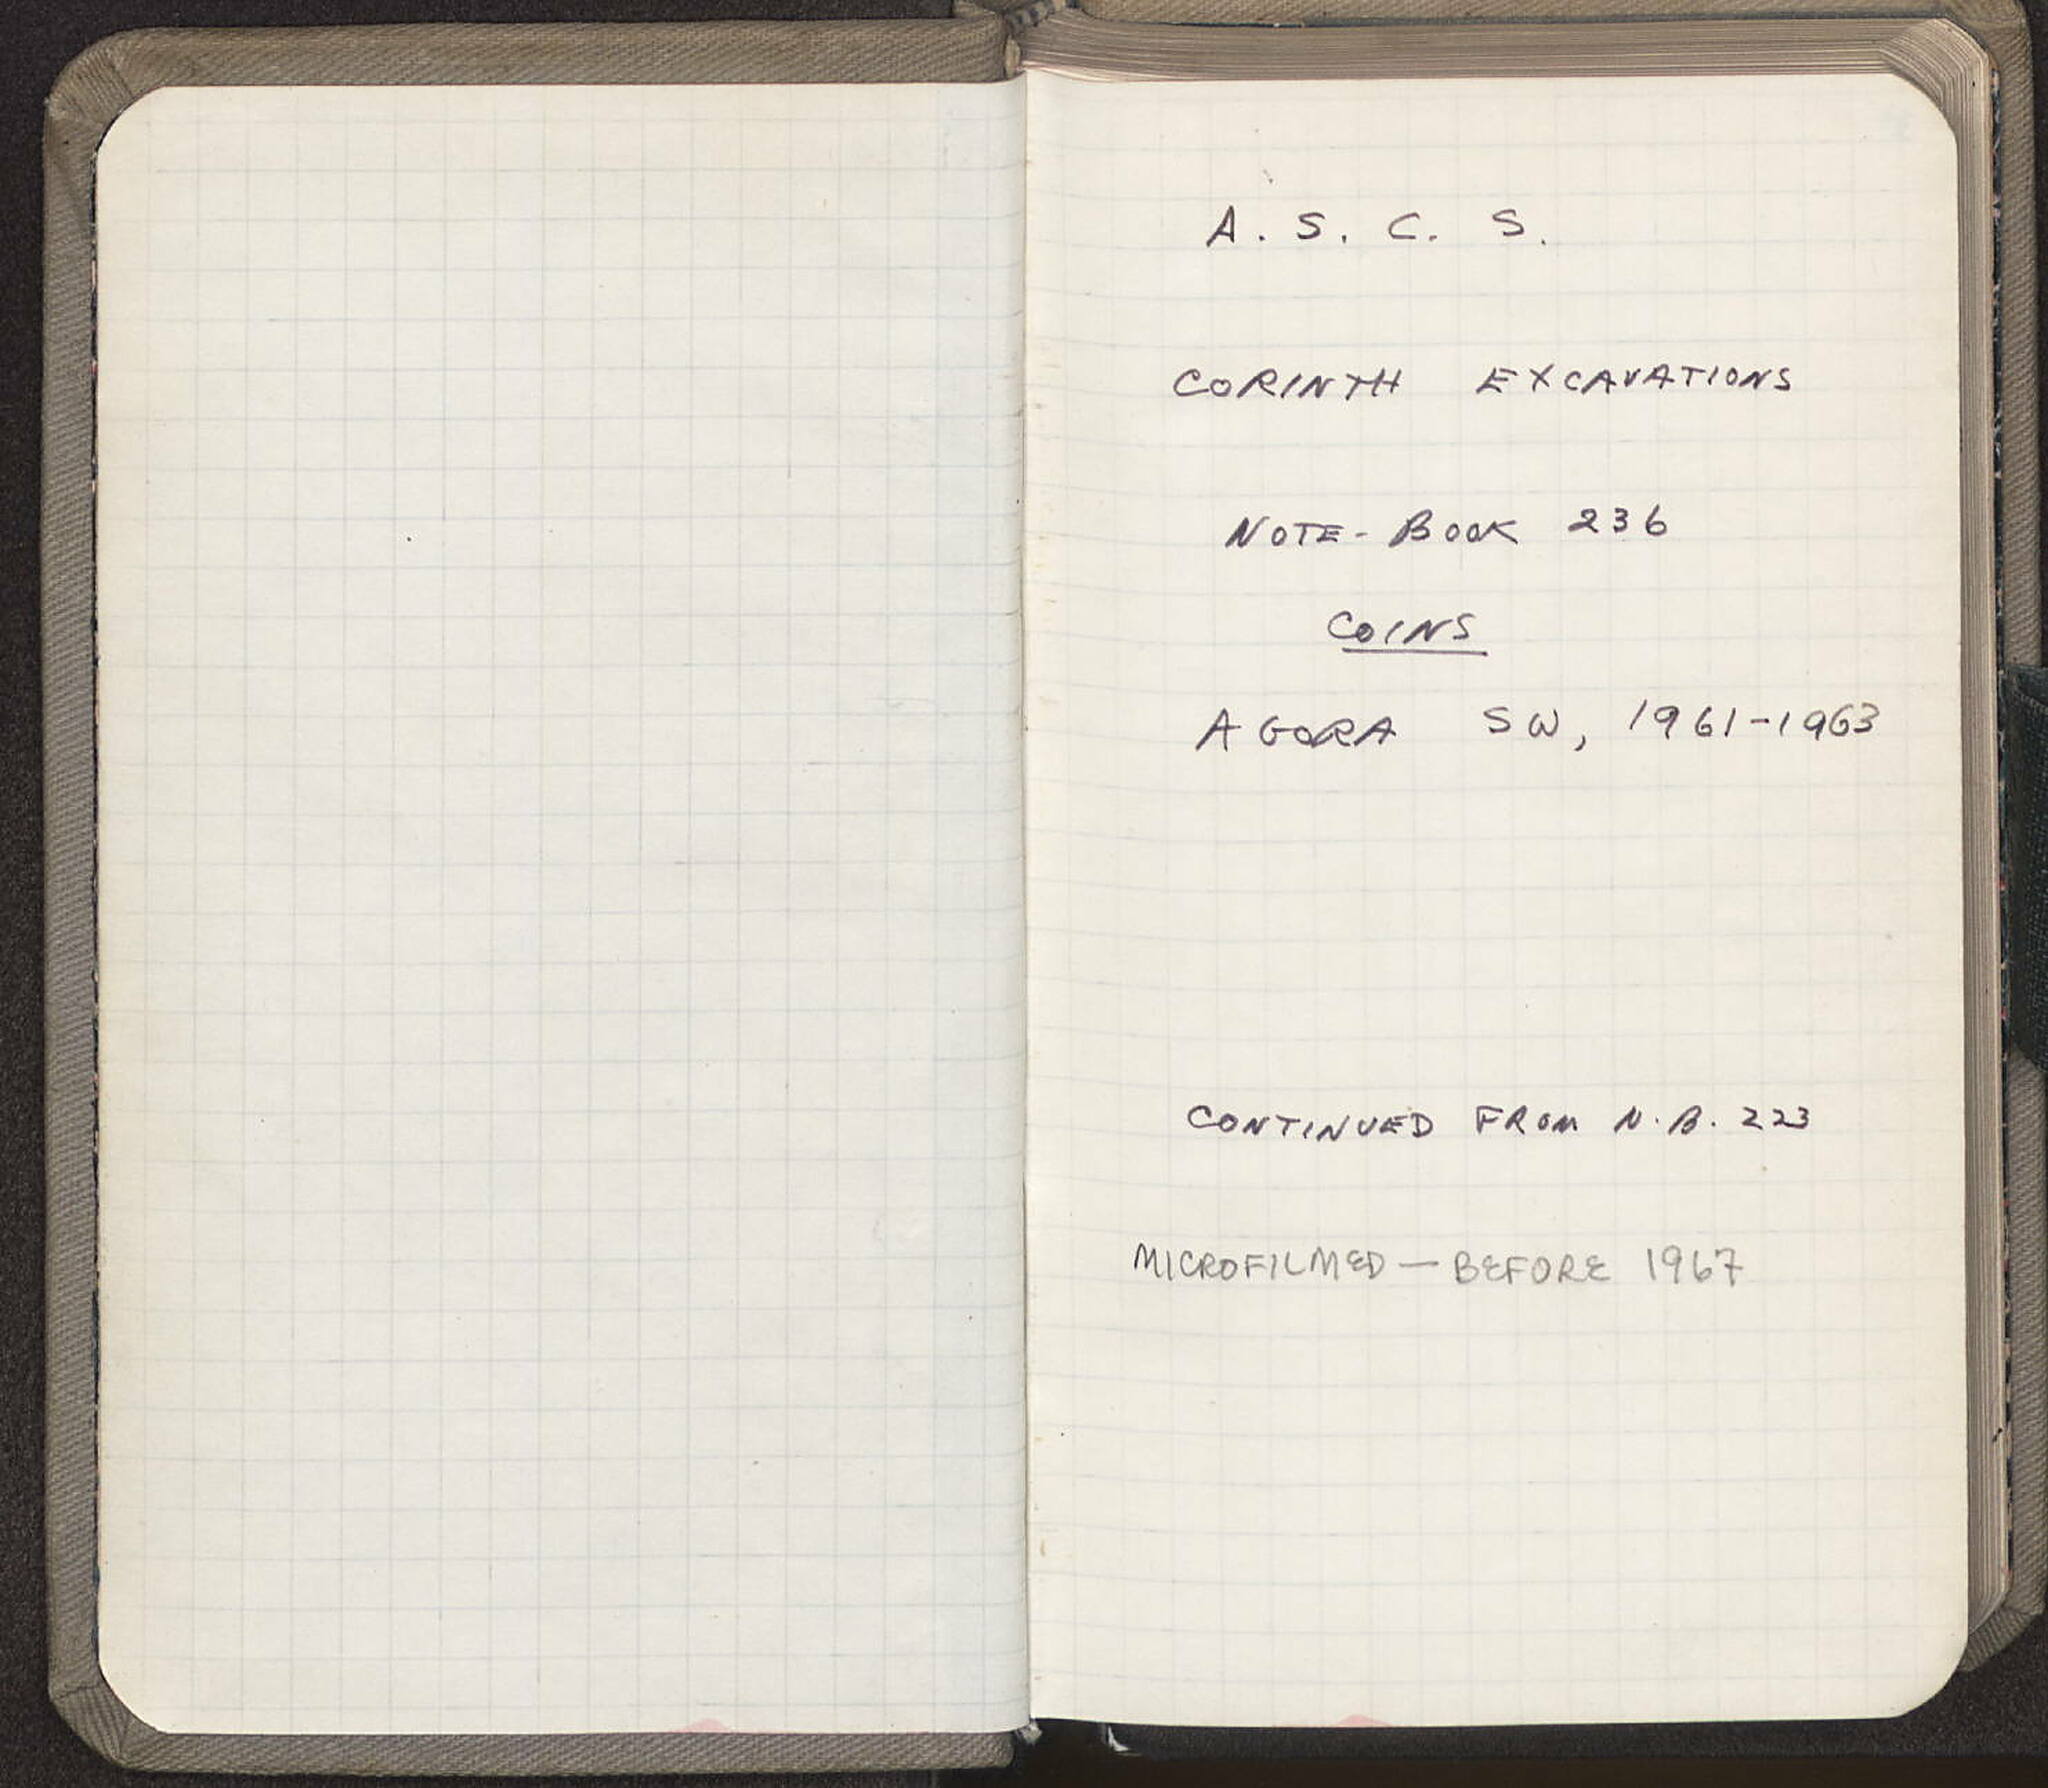 A. S. C. S.
CORINTH EXCAVATIONS
NOTE-BOOK 236
COINS
AGORA SW, 1961-1963
CONTINUED FROM N.B. 223
MICROFILMED — BEFORE 1967